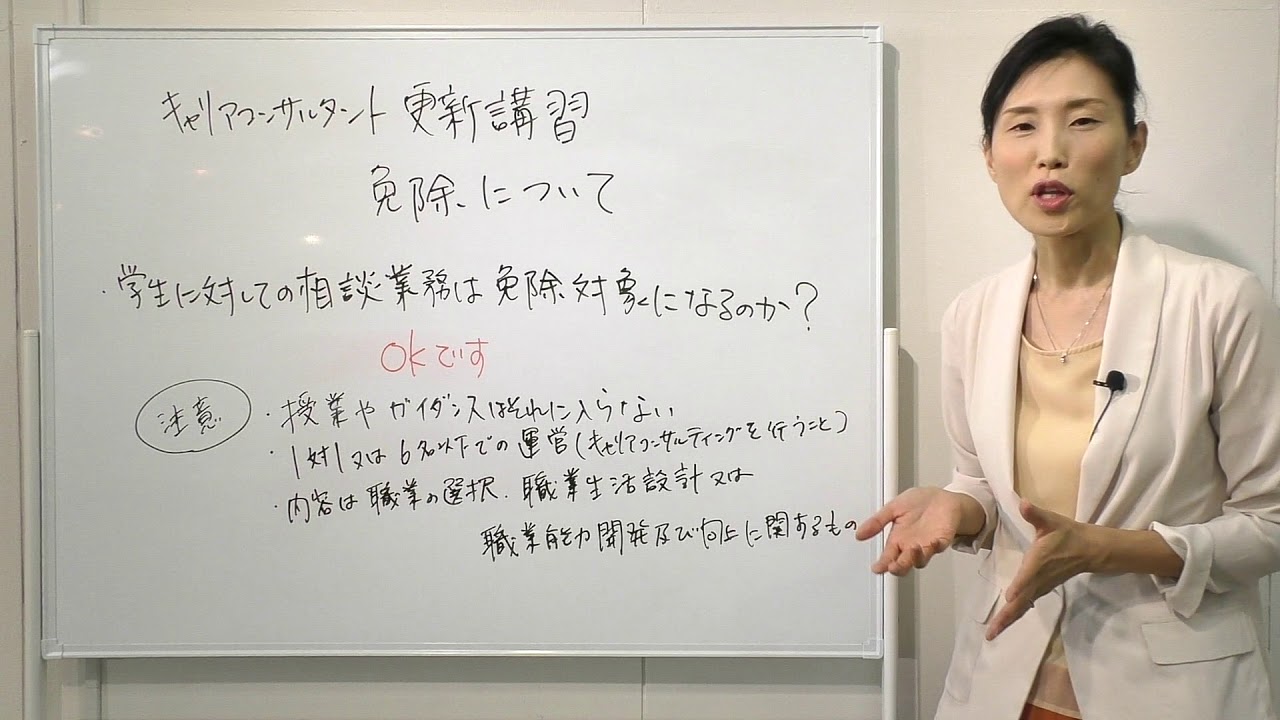 キャリアコンサルタント 更新講習
免除について
・学生に対しての相談業務は免除対象になるのか?
OKです
注意
・授業やガイダンスはそれに入らない
・1対1又は6名以下での運営(キャリアコンサルティングを行うこと)
・内容は職業の選択、職業生活設計又は
職業能力開発及び向上に関するもの